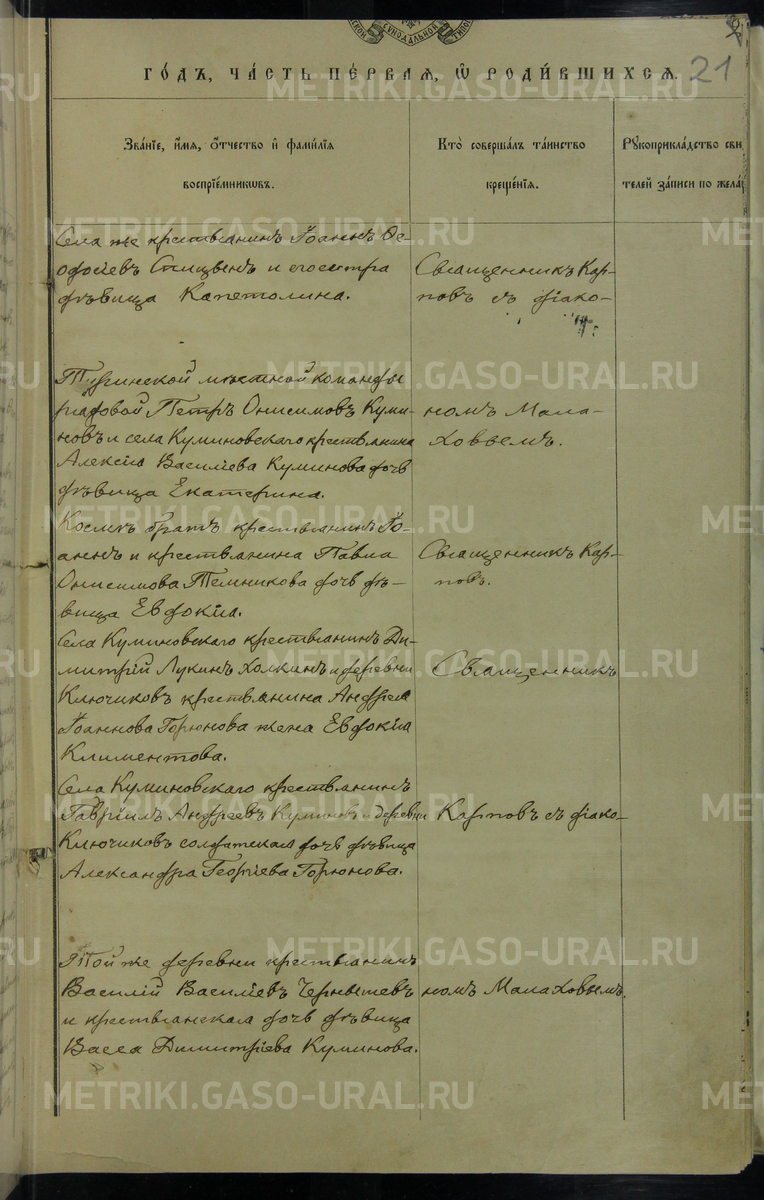 21
ГОДЪ, ЧАСТЬ ПЕРВАЯ, Ѡ РОДИВШИХСЯ.
Званіе, имя, отчество и фамилія
воспріемниковъ.
Кто совершалъ таинство
крещенія.
Рукоприкладство сви
телей записи по жела
Села же крестьянинъ Іоаннъ Ѳе-
одосіевъ и его сестра
дѣвица Капетолина.
Священникъ Кар-
повъ съ діако-
Туринской мѣстной команды
рядовой Петръ Онисимовъ Куми-
новъ и села Куминовскаго крестьянина
Алексія Василіева Куминова дочь
дѣвица Екатерина.
номъ Мала-
ховымъ.
братъ крестьянинъ Іо-
аннъ и крестьянина Павла
Онисимова Темникова дочь дѣ-
вица Евдокія.
Священникъ Кар-
повъ.
Села Куминовскаго крестьянинъ Ди-
митрій Лукинъ Холкинъ и деревни
Ключиковъ крестьянина Андрея
Іоаннова Горюнова жена Евдокія
Климентова.
Священникъ
Села Куминовскаго крестьянинъ
Гавріилъ Андреевъ Куминовъ и деревни
Ключиковъ солдатская дочь дѣвица
Александра Георгіева Горюнова.
Карповъ съ діако-
Той же деревни крестьянинъ
Василій Василіевъ Чернышевъ
и крестьянская дочь дѣвица
Васса Димитріева Куминова.
номъ Малаховымъ.
METRIKI.GASO-URAL.RU